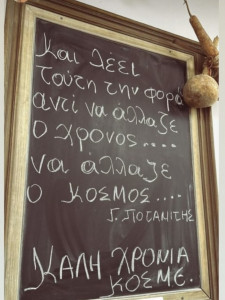 Και λέει
τούτη την φορά
αντί να άλλαζε
ο χρόνος....
να άλλαζε
ο κοσμος....
Γ. ΠΟΤΑΝΙΤΗΣ
ΚΑΛΗ ΧΡΟΝΙΑ
ΚΟΣΜΕ.